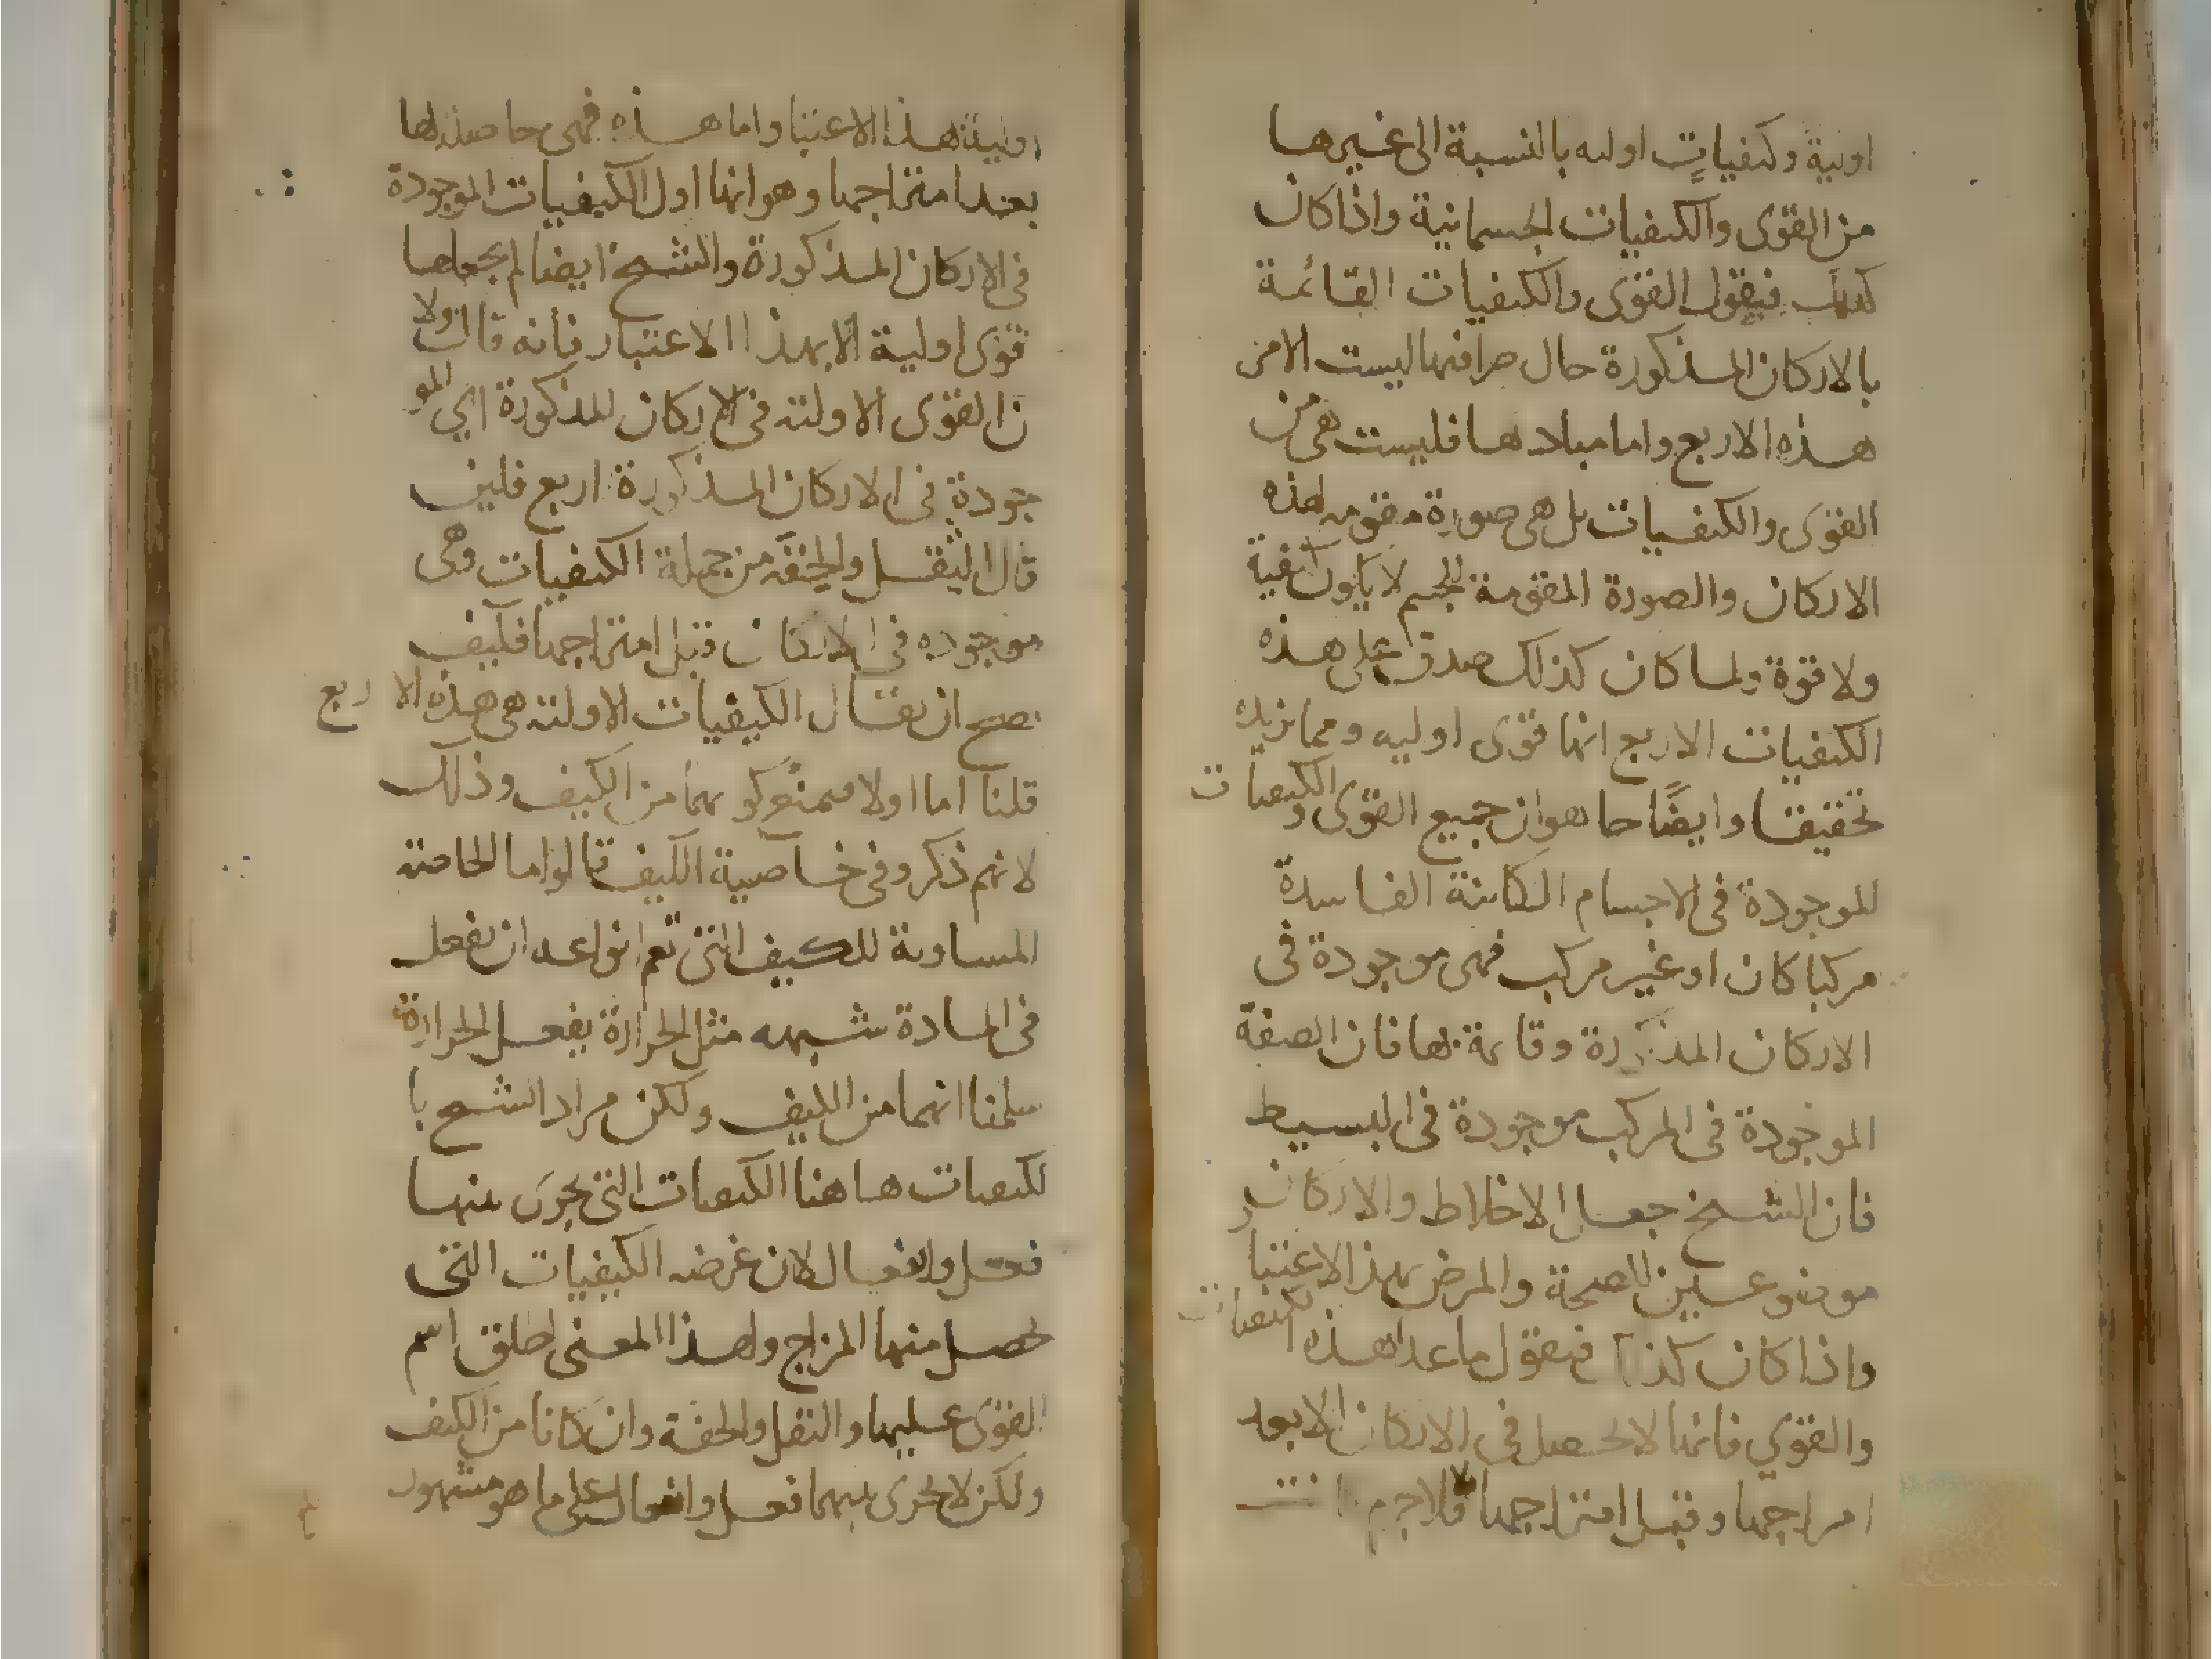 اولية وكيفيات اوليه بالنسبة الى غيرها
من القوى والكيفيات الجسمانية واذا كان
كذلك فيقول القوى والكيفيات القائمة
بالاركان المذكورة حال صرافتها ليست الا من
هذه الاربع واما مبادها فليست هى من
القوى والكيفيات بل هى صورة مقومه لهذه
الاركان والصورة المقومة للجسم لا يكون كيفية
ولا قوة ولما كان كذلك صدق على هذه
الكيفيات الاربع انها قوى اوليه ومما يزيده
تحقيقا وايضاحا هو ان جميع القوى والكيفيات
الموجودة فى الاجسام الكائنة الفاسدة
مركبا كان او غير مركب فهى موجودة فى
الاركان المذكورة وقائمة بها فان الصفة
الموجودة فى المركب موجودة فى البسيط
فان الشيخ جعل الاخلاط والاركان
موضوعين للصحة والمرض بهذا الاعتبا
واذا كان كذلك فيقول ما عدا هذه الكيفيات
والقوي فانها لا تحصل فى الاركان الا بعد
امتزاجها وقبل امتزاجها فلا جرم
اولية هذا الاعتبا واما هذه فهى حاصلة لها
بعد امتزاجها وهو انها اول الكيفيات الموجودة
فى الاركان المذكورة والشيخ ايضا لم يجعلها
قوى اولية الا بهذا الاعتبار فانه قال ولا
ن القوى الاولية فى الاركان المذكورة اي المو
جودة فى الاركان المذكورة اربع فليف
قال الثقل والخفة من جملة الكيفيات وهى
موجوده فى الاركان قبل امتزاجها فكيف
يصح ان يقال الكيفيات الاولية هى هذه الاربع
قلنا اما اولا فيمنع كونهما من الكيف وذلك
لانهم ذكروفى خاصية الكيف قالوا ما الخاصة
المساوية للكيف التى تعم انواعه ان يفعل
فى المادة شبيهه مثل الحرارة يفعل الحرارة
سلمنا انهما من الكيف ولكن مراد الشيخ با
لكيفيات هاهنا الكيفيات التى يجرى بينها
فعل وانفعال لان غرضه الكيفيات التى
يحصل منها المزاج ولهذا المعنى اطلق اسم
القوى عليها والثقل والخفة وان كانا من الكيف
ولكن لا يجرى بينهما فعل وانفعال على ما هو مشهور